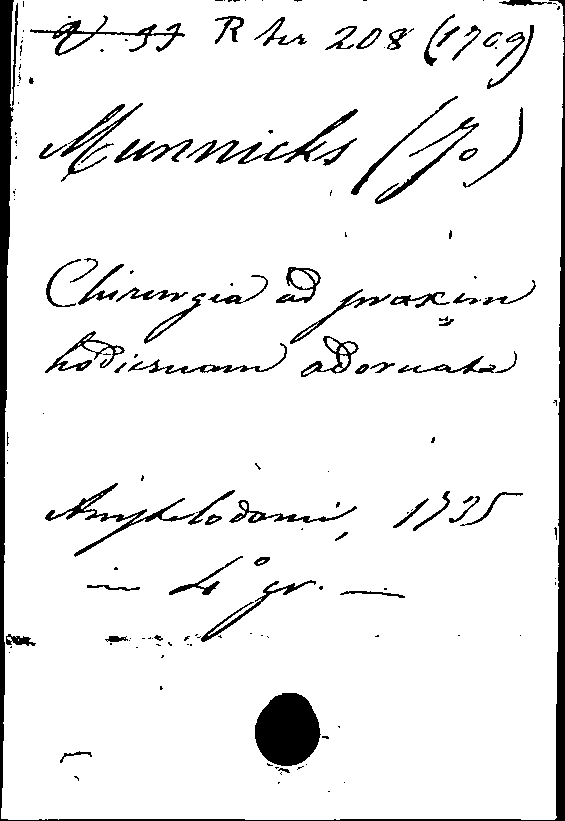 V. 33 R ter 208 (1709)
Munnicks (Jo)
Chirurgia ad praxim
hodiernam adornata
Amstelodami, 1735
in 4° gr. —